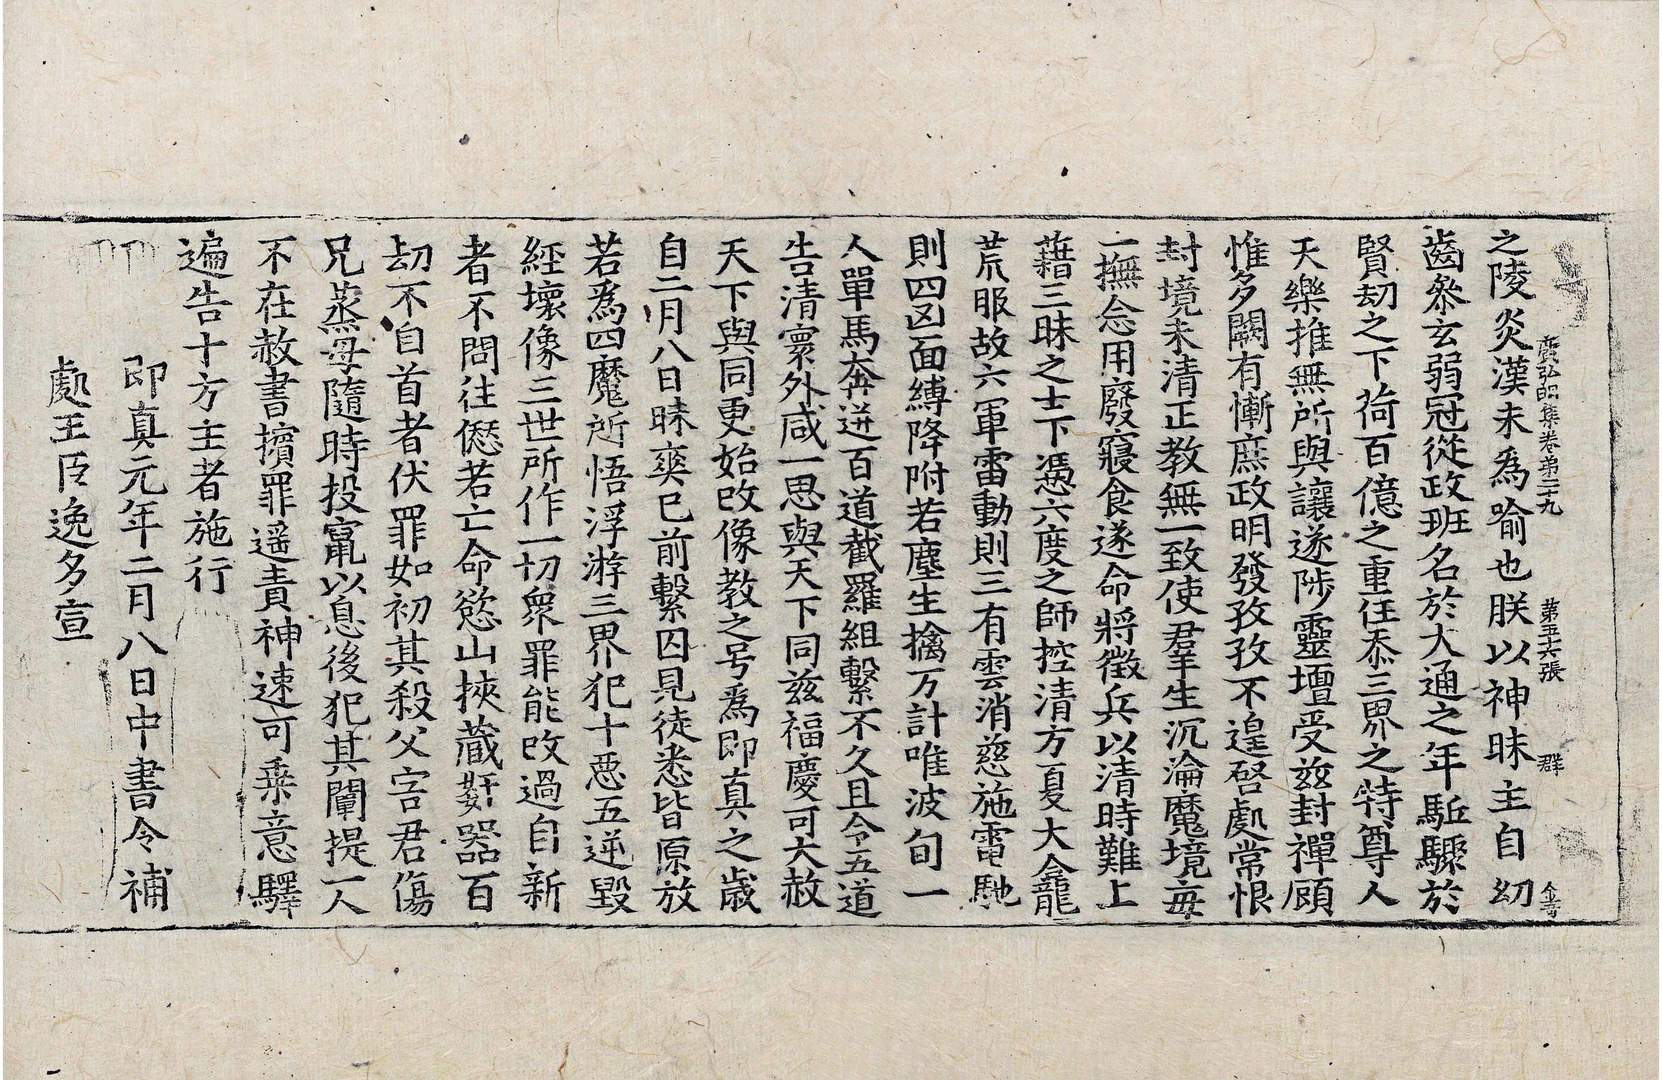 廣弘明集卷第二十九 第五六張 群
之陵炎漢未爲喻也朕以神昧主自幼
齒叅玄弱冠從政班名於大通之年駈驟於
賢劫之下荷百億之重任忝三界之特尊人
天樂推無所與讓遂陟靈壇受兹封禪顧
惟多闕有慚庶政明發孜孜不遑啓處常恨
封境未清正教無一致使羣生沉淪魔境毎
一撫念用廢寢食遂命將徵兵以清時難上
藉三昧之士下憑六度之師控清方夏大龕
荒服故六軍雷動則三有雲消慈施電馳
則四凶面縛降附若塵生擒万計唯波旬一
人單馬奔迸百道截羅組繫不久且令五道
告清寰外咸一思與天下同兹福慶可大赦
天下與同更始改像教之号爲即真之歲
自二月八日昧爽已前繫囚見徒悉皆原放
若爲四魔所悟浮游三界犯十惡五逆毀
經壞像三世所作一切衆罪能改過自新
者不問往愆若亡命慾山挾藏姧器百
劫不自首者伏罪如初其殺父害君傷
兄蒸母隨時投竄以息後犯其闡提一人
不在赦書擯罪遥責神速可乗意驛
遍告十方主者施行
即真元年二月八日中書令補
處王臣逸多宣